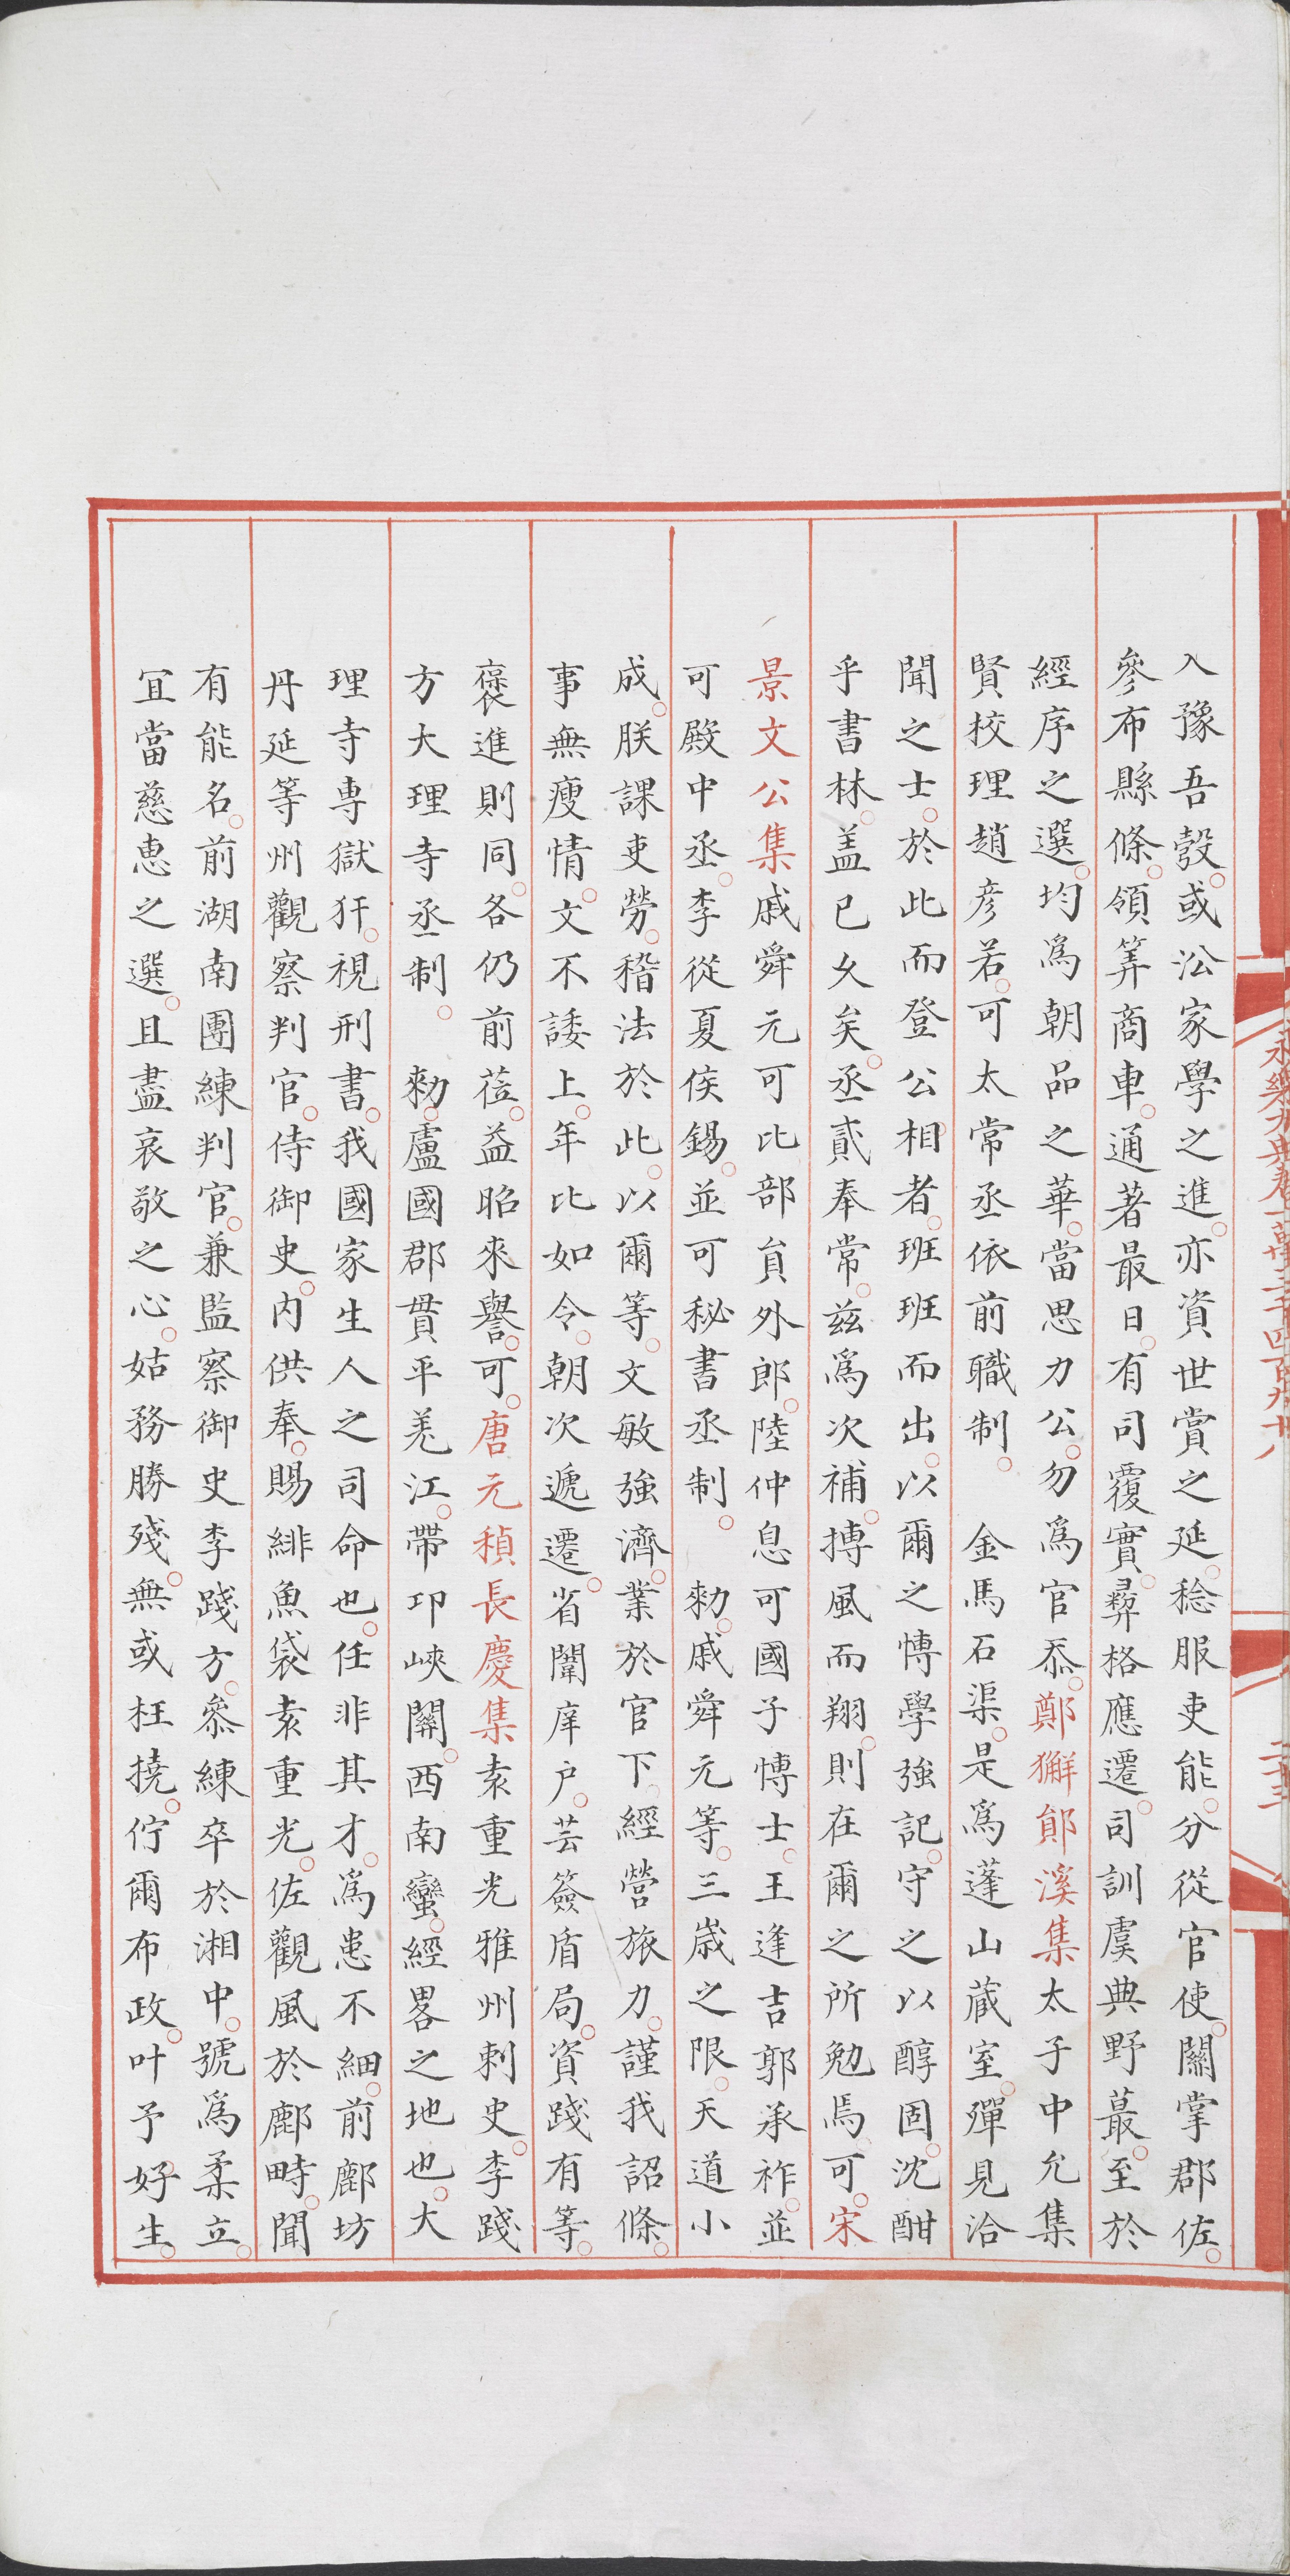 入豫吾彀或㳂家學之進亦資世賞之延稔服吏能分從官使關掌郡佐
參布縣條領筭商車通著最日有司覆實彛格應遷司訓虞典野蕞至於
經序之選均爲朝品之華當思力公勿爲官忝鄭獬鄖溪集太子中允集
賢校理趙彦若可太常丞依前職制 金馬石渠是爲蓬山蔵室殫見洽
聞之士於此而登公相者班班而出以爾之愽學強記守之以醇固沈酣
乎書林盖已乆矣丞貳奉常兹爲次補摶風而翔則在爾之所勉焉可宋
景文公集戚舜元可比部貟外郎陸仲息可國子愽士王逢吉郭承祚並
可殿中丞李從夏侯錫並可秘書丞制 勑戚舜元等三嵗之限天道小
成朕課吏勞稽法於此以爾等文敏強濟業於官下經營旅力謹我詔條
事無瘦情文不諉上年比如令朝次遞遷省闈庠户芸簽盾局資踐有等
褒進則同各仍前莅益昭來譽可唐元稹長慶集袁重光雅州刺史李踐
方大理寺丞制 勑盧國郡貫平羗江帶卭峽關西南蠻經畧之地也大
理寺専獄犴視刑書我國家生人之司命也任非其才爲患不細前鄜坊
丹延等州觀察判官侍御史内供奉賜緋魚袋袁重光佐觀風於鄜畤聞
有能名前湖南團練判官兼監察御史李踐方叅練卒於湘中號爲柔立
冝當慈惠之選且盡哀敬之心姑務勝殘無或枉撓佇爾布政叶予好生
永樂大典卷一萬三千四百九十八
二十三